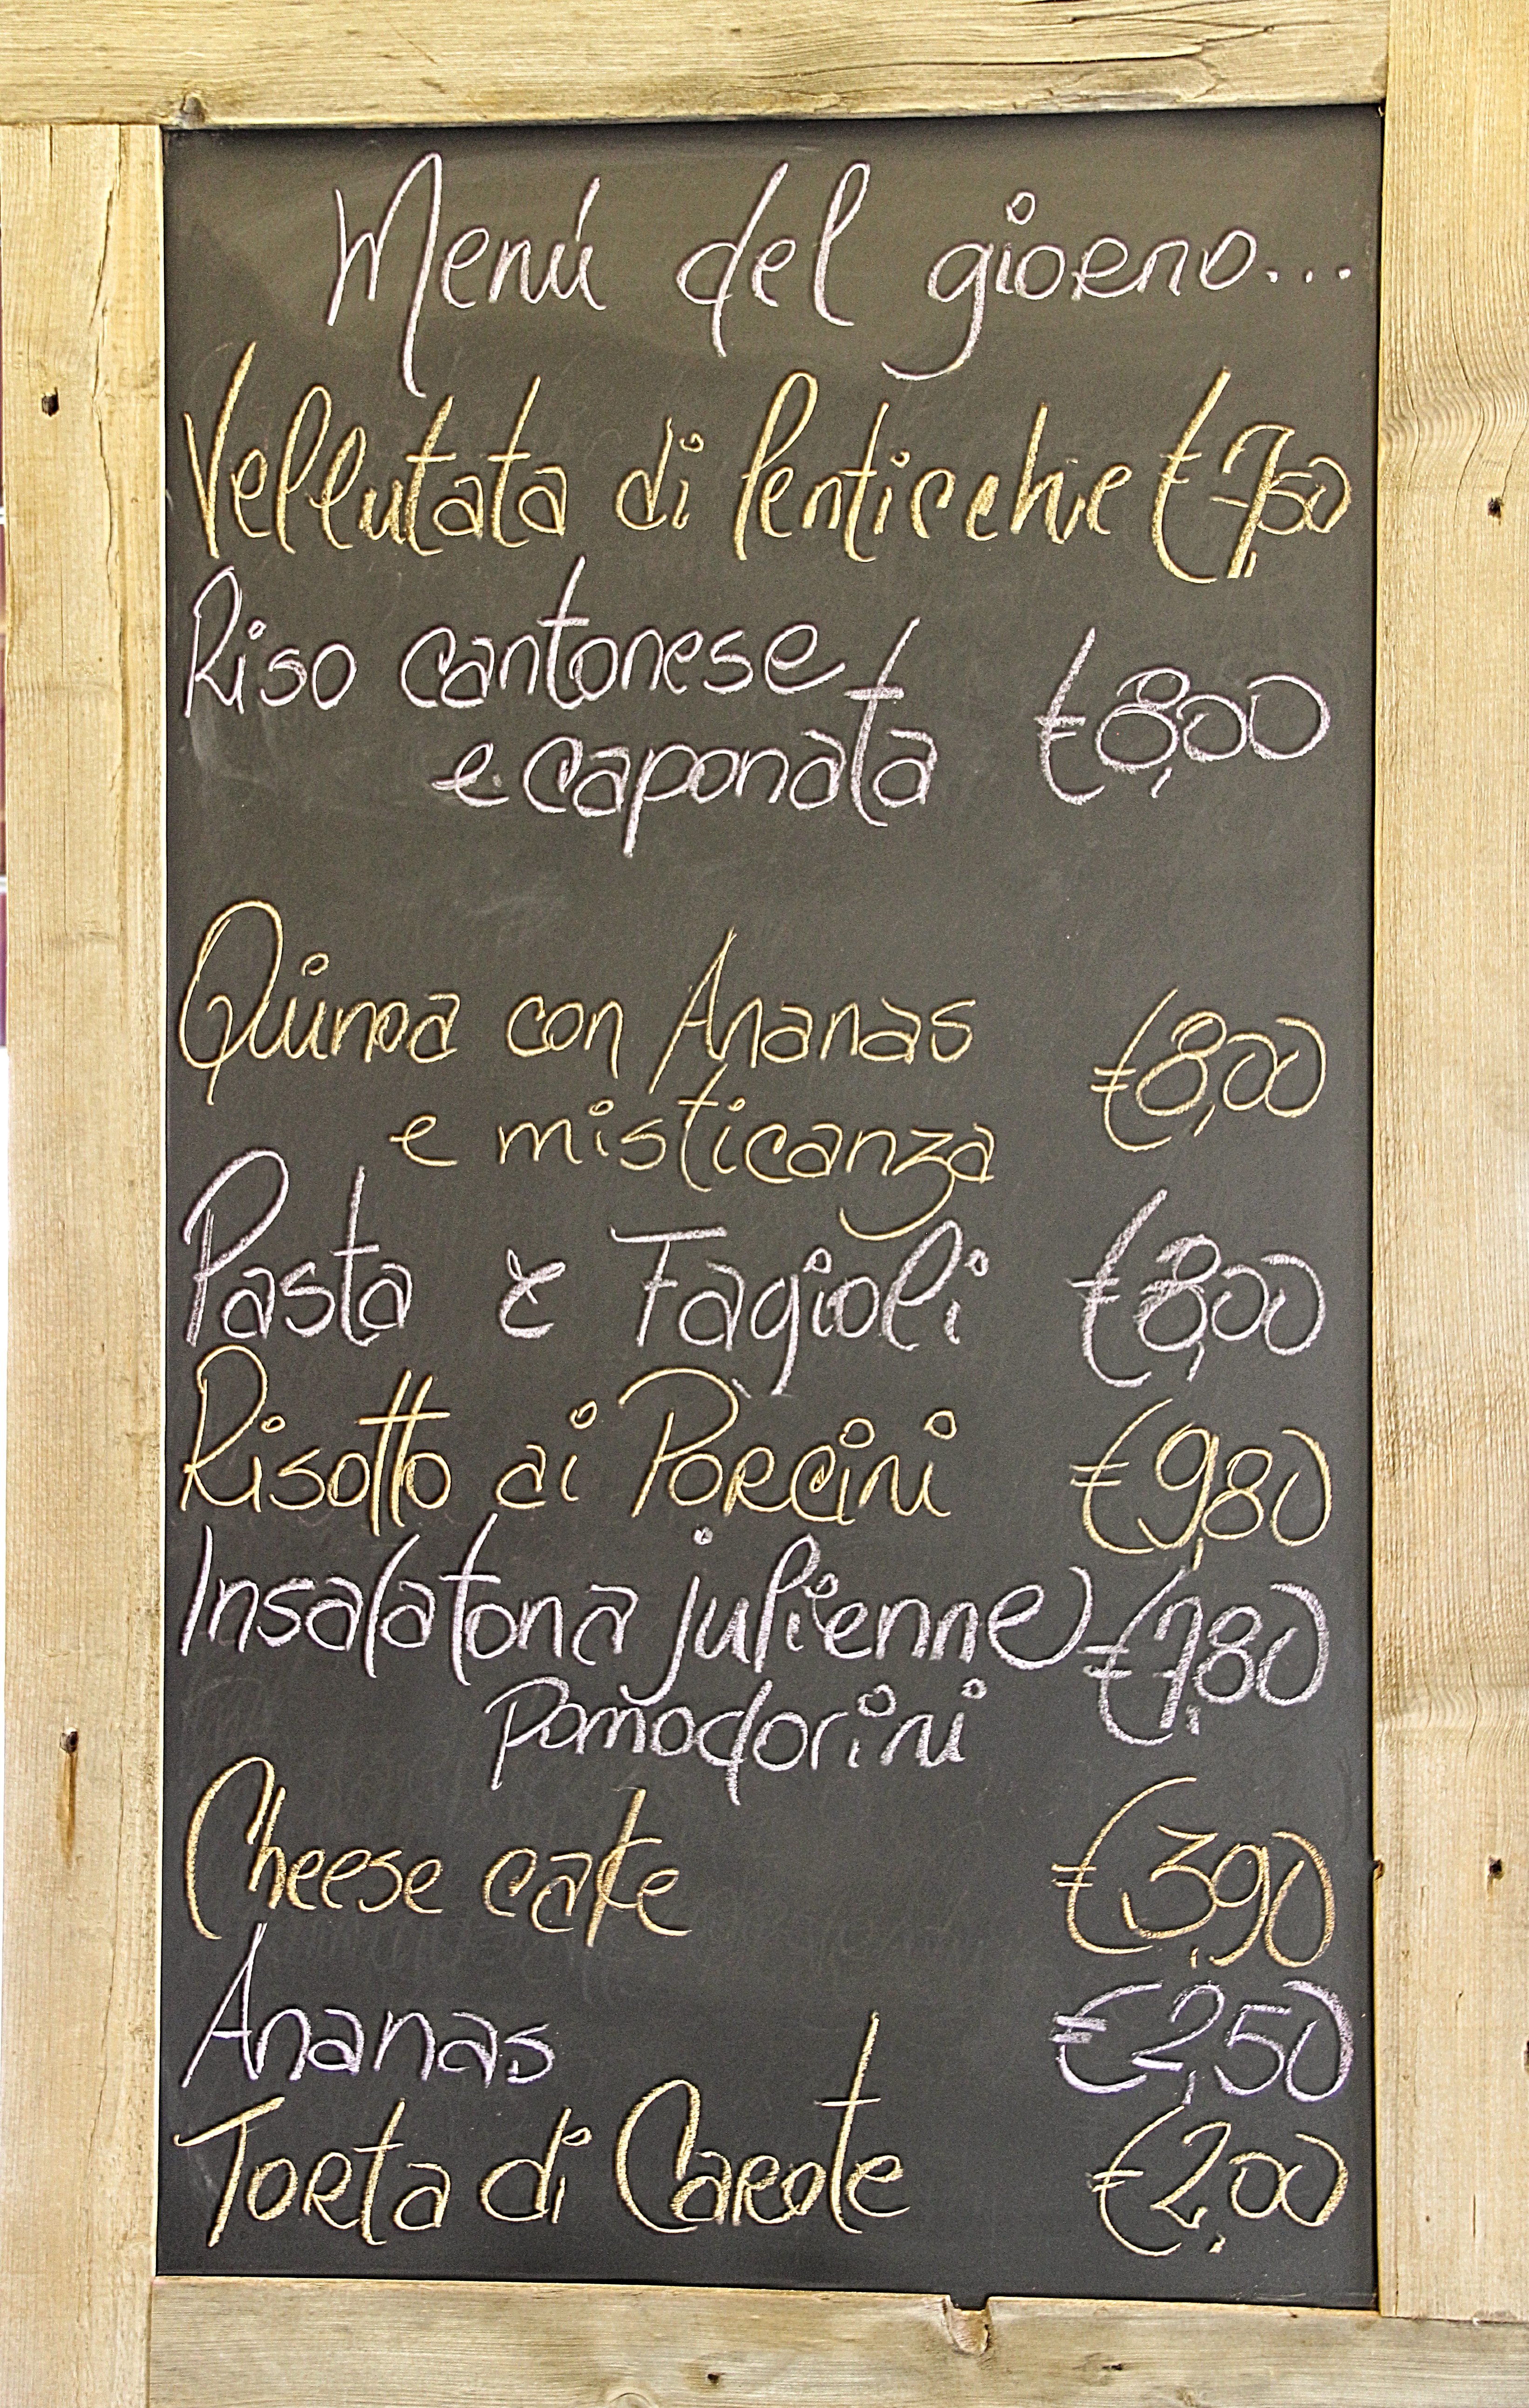 Menú del giorno...
Vellutata di lenticchie € 7,50
Riso cantonese
e caponata € 8,00
Quinoa con Ananas
e misticanza € 8,00
Pasta e Fagioli € 8,00
Risotto ai Porcini € 9,80
Insalatona julienne € 7,80
pomodorini
Cheese cake € 3,90
Ananas € 2,50
Torta di Carote € 2,00